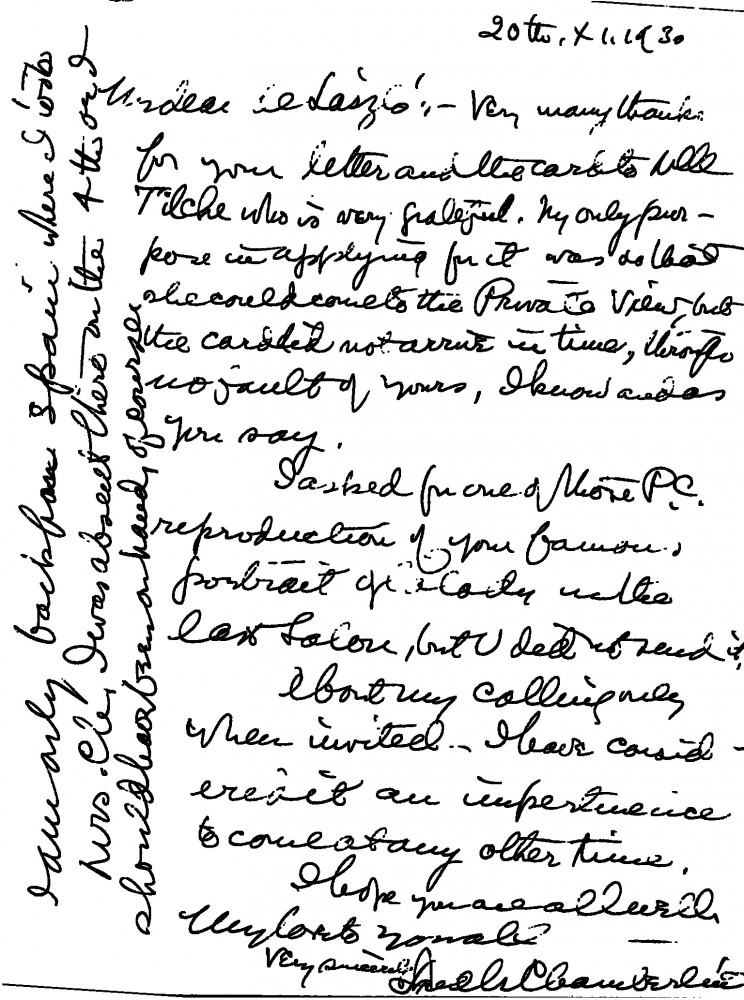 20th. XI. 1930
My dear de László:, – Very many thanks
for your letter and the card to Mlle
Tilche who is very grateful. My only pur-
pose in applying for it was so that
she could come to the Private View, but
the card did not arrive in time, through
no fault of yours, I know and as
you say.
I asked for one of those P.C.
reproduction of your famous
portrait of a Lady in the
last Salon, but U did not send it,
About my calling only
when invited – I have consid-
ered it an impertinence
to come at any other time.
I hope you are all well
My love to you all
Very sincerely Chamberlin
I am only back from Spain where I took
Mrs. Ch., I was absent there on the 4th or I
should have been on hand, of course